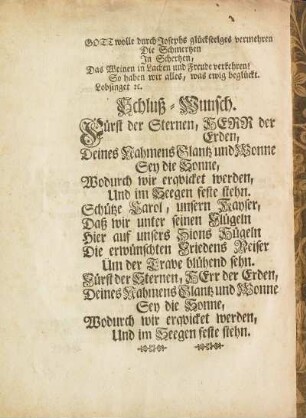 GOTT wolle durch Josephs glückseeliges vermehren
Die Schmertzen
In Schertzen,
Das Weinen in Lachen und Freude verkehren!
So haben wir alles, was ewig beglückt.
Lobsinget ꝛc.
Schluß-Wunsch.
Fürst der Sternen, HERR der
Erden,
Deines Nahmens Glantz und Wonne
Sey die Sonne,
Wodurch wir erqvicket werden,
Und im Seegen feste stehn.
Schütze Carol, unsern Kayser,
Daß wir unter seinen Flügeln
Hier auf unsers Zions Hügeln
Die erwünschten Friedens Reiser
Um der Trave blühend sehn.
Fürst der Sternen, HErr der Erden,
Deines Nahmens Glantz und Wonne
Sey die Sonne,
Wodurch wir erqvicket werden,
Und im Seegen feste stehn.